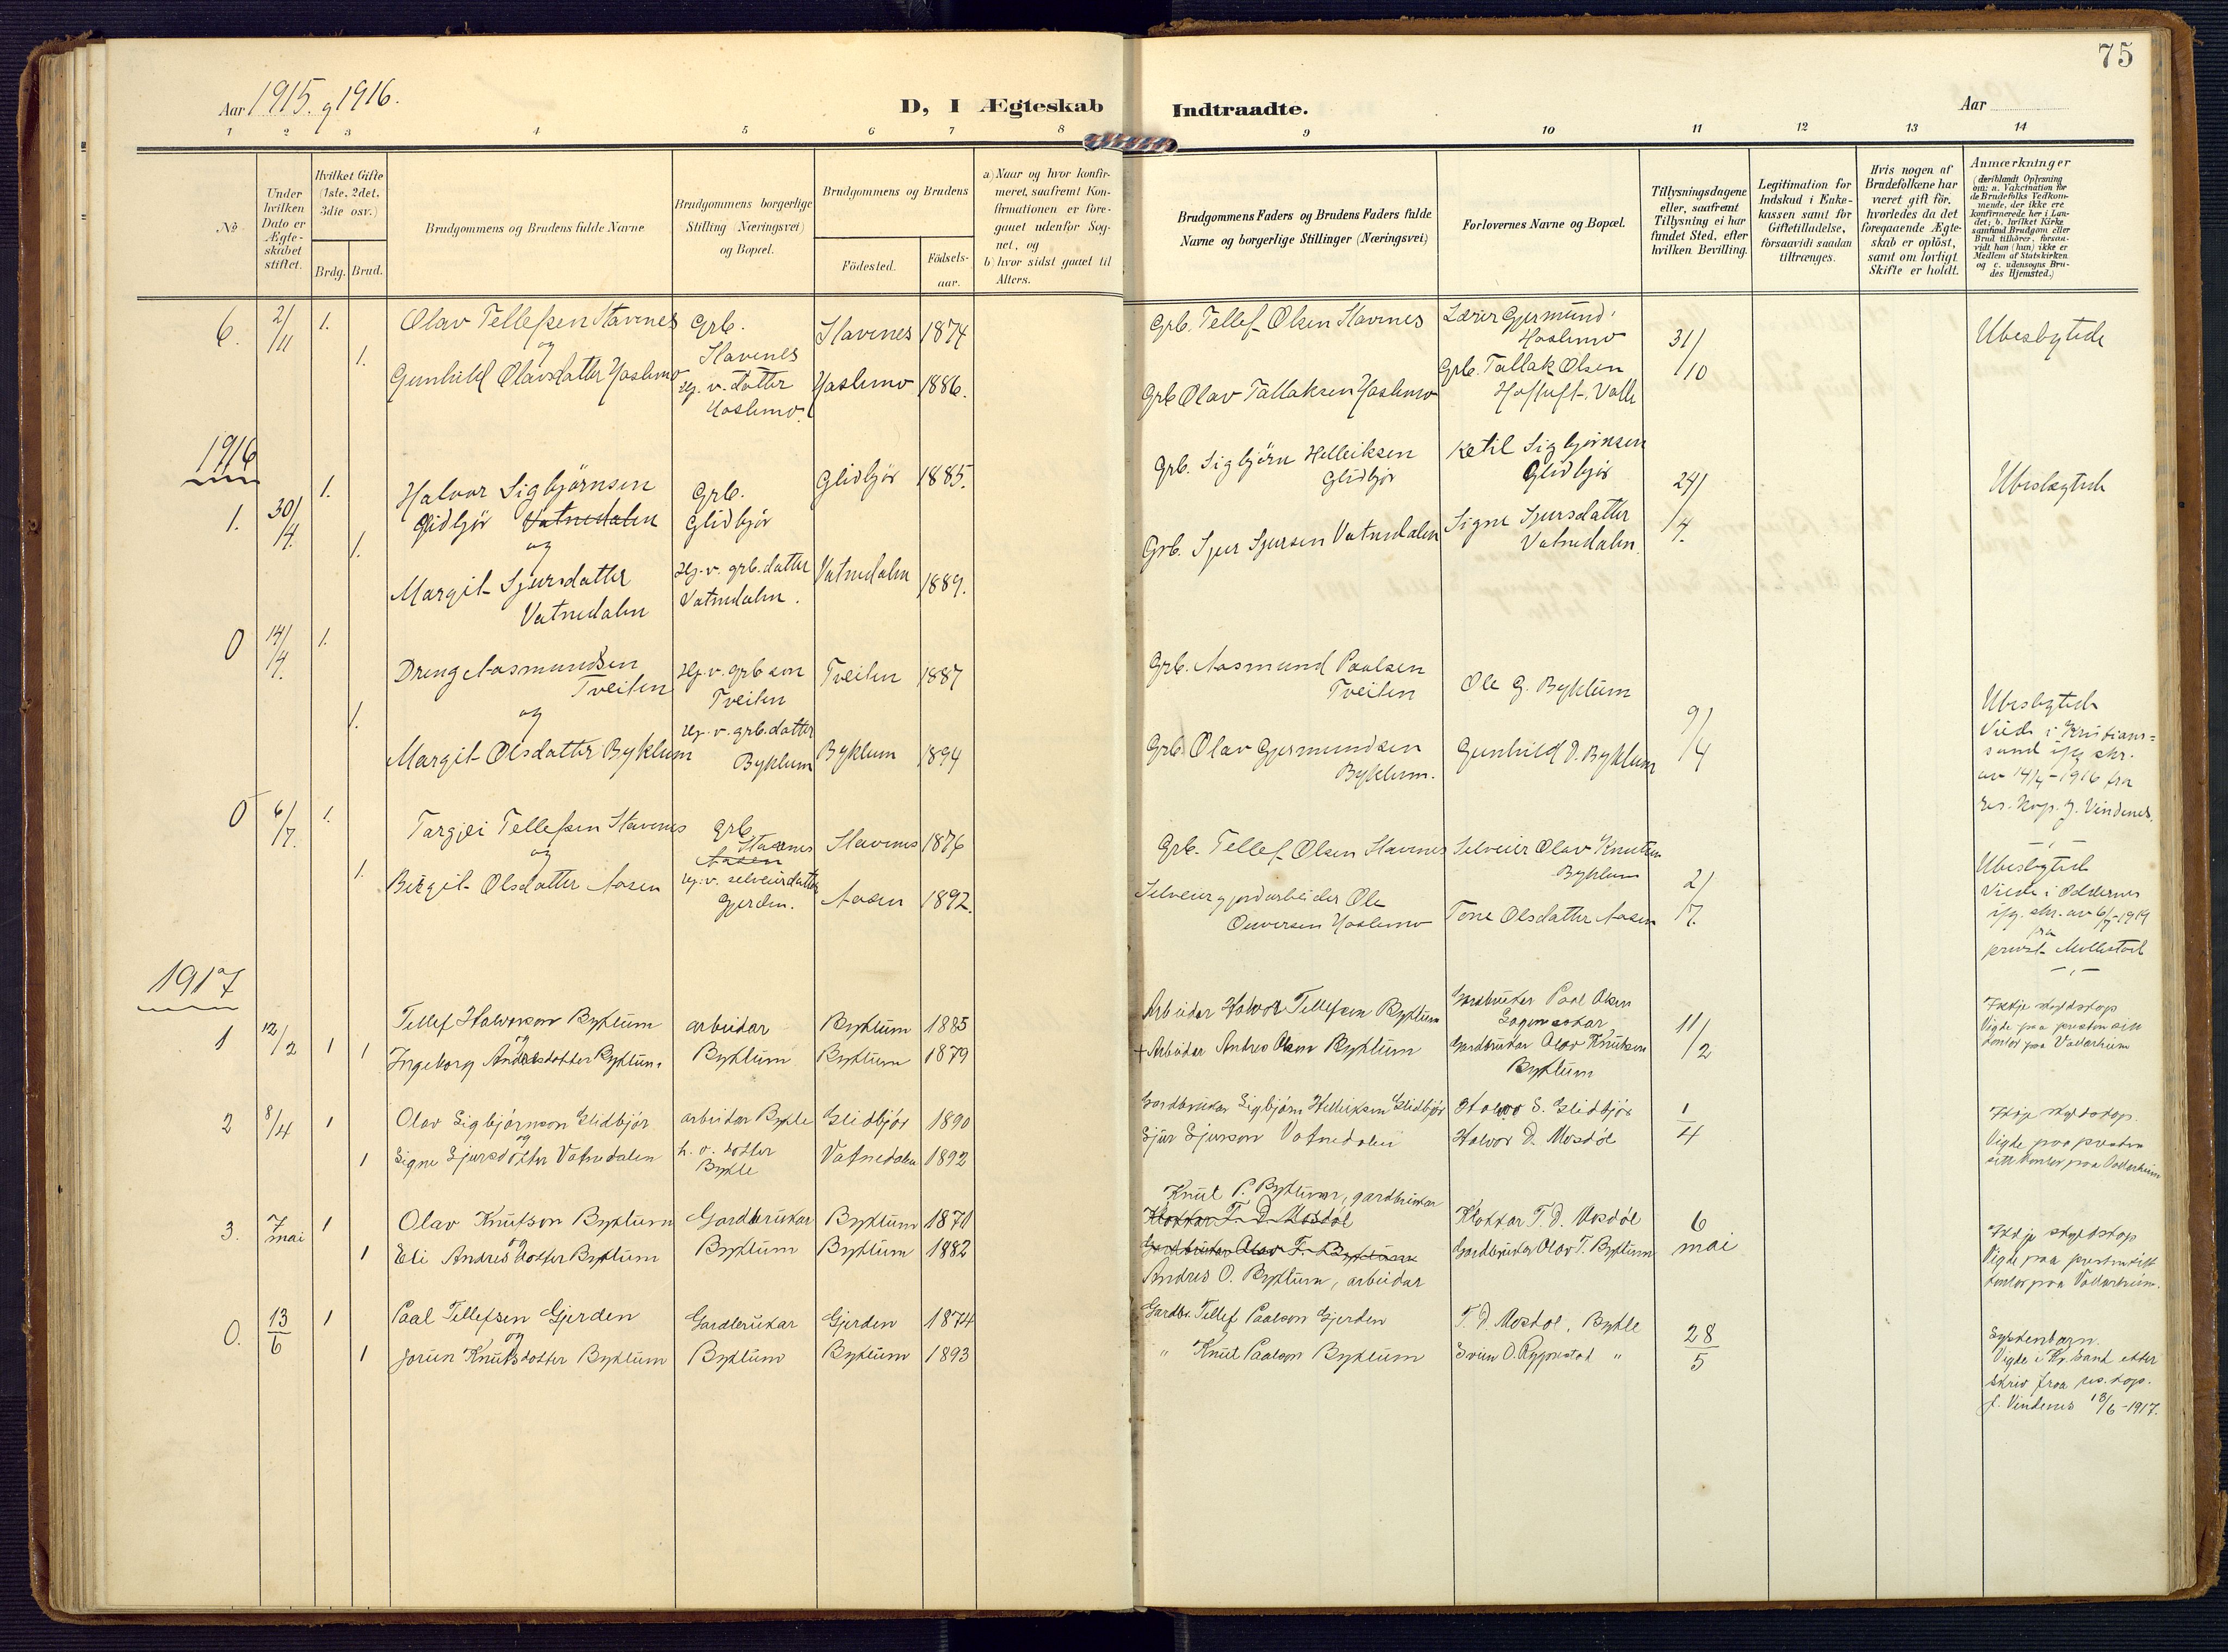 75
Aar 1915. og 1916.
D, I Ægteskab Indtraadte.
Aar
1 2 3 4 5 6 7 8 9 10 11 12 13 14
No
Under hvilken Dato er Ægteskabet stiftet.
Hvilket Gifte (1ste, 2det, 3die osv.)
Brdg. Brud.
Brudgommens og Brudens fulde Navne
Brudgommens borgerlige Stilling (Næringsvei) og Bopæl.
Brudgommens og Brudens
Födested.
Födsels-aar.
a) Naar og hvor konfirmeret, saafremt Konfirmationen er foregaaet udenfor Sognet, og
b) hvor sidst gaaet til Alters.
Brudgommens Faders og Brudens Faders fulde Navne og borgerlige Stillinger (Næringsvei)
Forlovernes Navne og Bopæl.
Tillysningsdagene eller, saafremt Tillysning ei har fundet Sted, efter hvilken Bevilling.
Legitimation for Indskud i Enkekassen samt for Giftetilladelse, forsaavidt saadan tiltrænges.
Hvis nogen af Brudefolkene har været gift för, hvorledes da det foregaaende Ægteskab er oplöst, samt om lovligt Skifte er holdt.
Anmærkninger (deriblandt Oplysning om: a. Vakcination for de Brudefolks Vedkommende, der ikke ere konfirmerede her i Landet; b. hvilket Kirkesamfund Brudgom eller Brud tilhörer, forsaavidt han (hun) ikke er Medlem af Statskirken og c. udensogns Brudes Hjemsted.)
6. 2/11 1. Olav Tellefsen Stavenes Grb. Stavenes Stavenes 1874 Grb. Tellef Olsen Stavenes Lærer Gjermund Hoslemo 31/10 Ubeslegtede
og
1. Gunhild Olavsdatter Hoslemo Hj. v. datter Hoslemo Hoslemo 1886. Grb Olav Tallaksen Hoslemo Grb. Tallak Olsen Valle
1916
1. 30/4. 1. Halvor Sigbjörnsen Glidbjör Vatnedalen Grb. Glidbjör Glidbjör 1885. Grb. Sigbjörn Helleiksen Glidbjör Ketil Sigbjörnsen Glidbjör 24/4. Ubeslegtede
og
1. Margit Sjursdatter Vatnedalen Hj. v. grb. datter Vatnedalen. Vatnedalen 1889. Grb. Sjur Sjursen Vatnedalen Signe Sjursdatter Vatnedalen
0 14/4. 1. Dreng Aasmundsen Tveiten Hj. v. grb son Tveiten Tveiten 1887 Grb. Aasmund Paalsen Tveiten Ole G. Byklum 9/4
og
1. Margit Olsdatter Byklum Hj. v. grb. datter Byklum Byklum 1894 Grb. Olav Gjermundsen Byklum. Gunhild D. Byklum
Ubeslegtede
Viede i Kristians=
sand ifg skr.
av 14/4-1916 fra
res. kap. J. Vindenes.
0 6/7. 1. Targjei Tellefsen Stavenes Grb. Stavenes Aasen Stavenes 1876 Grb. Tellef Olsen Stavenes Selveier Olav Knutsen Byklum 2/7.
og
1. Birgit Olsdatter Aasen Hj. v. selveierdatter Gjerden. Aasen 1892. Selveier og jordarbeider Ole Hoslemo Tone Olsdatter Aasen
Ubeslegtede
Viede i Oddernes
ifg. skr. av 6/7-1919
fra
prost Mollestad
1917
1 12/2 1 Tellef Halvorson Byklum arbeidar Byklum 1885 Arbeidar Halvor Tellefsen Byklum Gardbrukar Paal Olsen 11/2
og
1 Ingeborg Andresdotter Byklum. Byklum Byklum 1879 + Arbeidar Andres Olsen Byklum Gardbrukar Olav Knutson Byklum
Ikkje skyldskap
Vigde paa presten sitt
kontor paa Valarheim
2 8/4 1 Olav Sigbjörnson Glidbjör arbeidar Bykle Glidbjör 1890 Gardbrukar Sigbjörn Helleikson Glidbjör Halvor S. Glidbjör 1/4
og
1 Signe Sjursdotter Vatnedalen h. v. dotter Bykle Vatnedalen 1892 Sjur Sjurson Vatnedalen Halvor D. Mosdöl
Ikkje skyldskap.
Vigde paa presten
sitt kontor paa Valarheim
3. 7 mai 1 Olav Knutson Byklum Gardbrukar Byklum 1871 Knut P. Byklum, gardbrukar Klokkar T. D. Mosdöl Klokkar T. D. Mosdöl 6 mai
og
1 Eli Andresdotter Byklum Byklum Byklum 1882 Gardbrukar Olav T. Byklum Andres O. Byklum, arbeidar Gardbrukar Olav T. Byklum
Ikkje skyldskap
Vigde paa presten sitt
kontor paa Valarheim.
0. 13/6 1 Paal Tellefsen Gjerden Gardbrukar Gjerden 1874 Gardbr. Tellef Paalson Gjerden T. D. Mosdöl, Bykle 28/5
og
1 Jorun Knutsdotter Byklum Byklum Byklum 1893 " Knut Paalson Byklum Svein O. Rygnestad "
Syskenbarn.
Vigde i Kr. sand etter
skriv fraa res. kap.
J. Vindenes 13/6-1917.